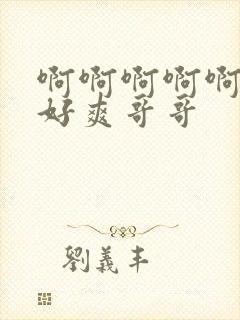 啊啊啊啊啊
好爽哥哥
劉義丰